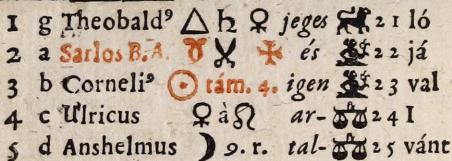 1 g Theobald⁹ △ ♄ ♀ jeges ♌ 21 ló
2 a Sarlos B. A. ♉ ✠ és 22 já
3 b Corneli⁹ ☉ tám. 4. igen 23 val
4 c Ulricus ♀ à ☊ ar- ♎ 24 I
5 d Anshelmus ☽ 9. r. tal- ♎ 25 vánt